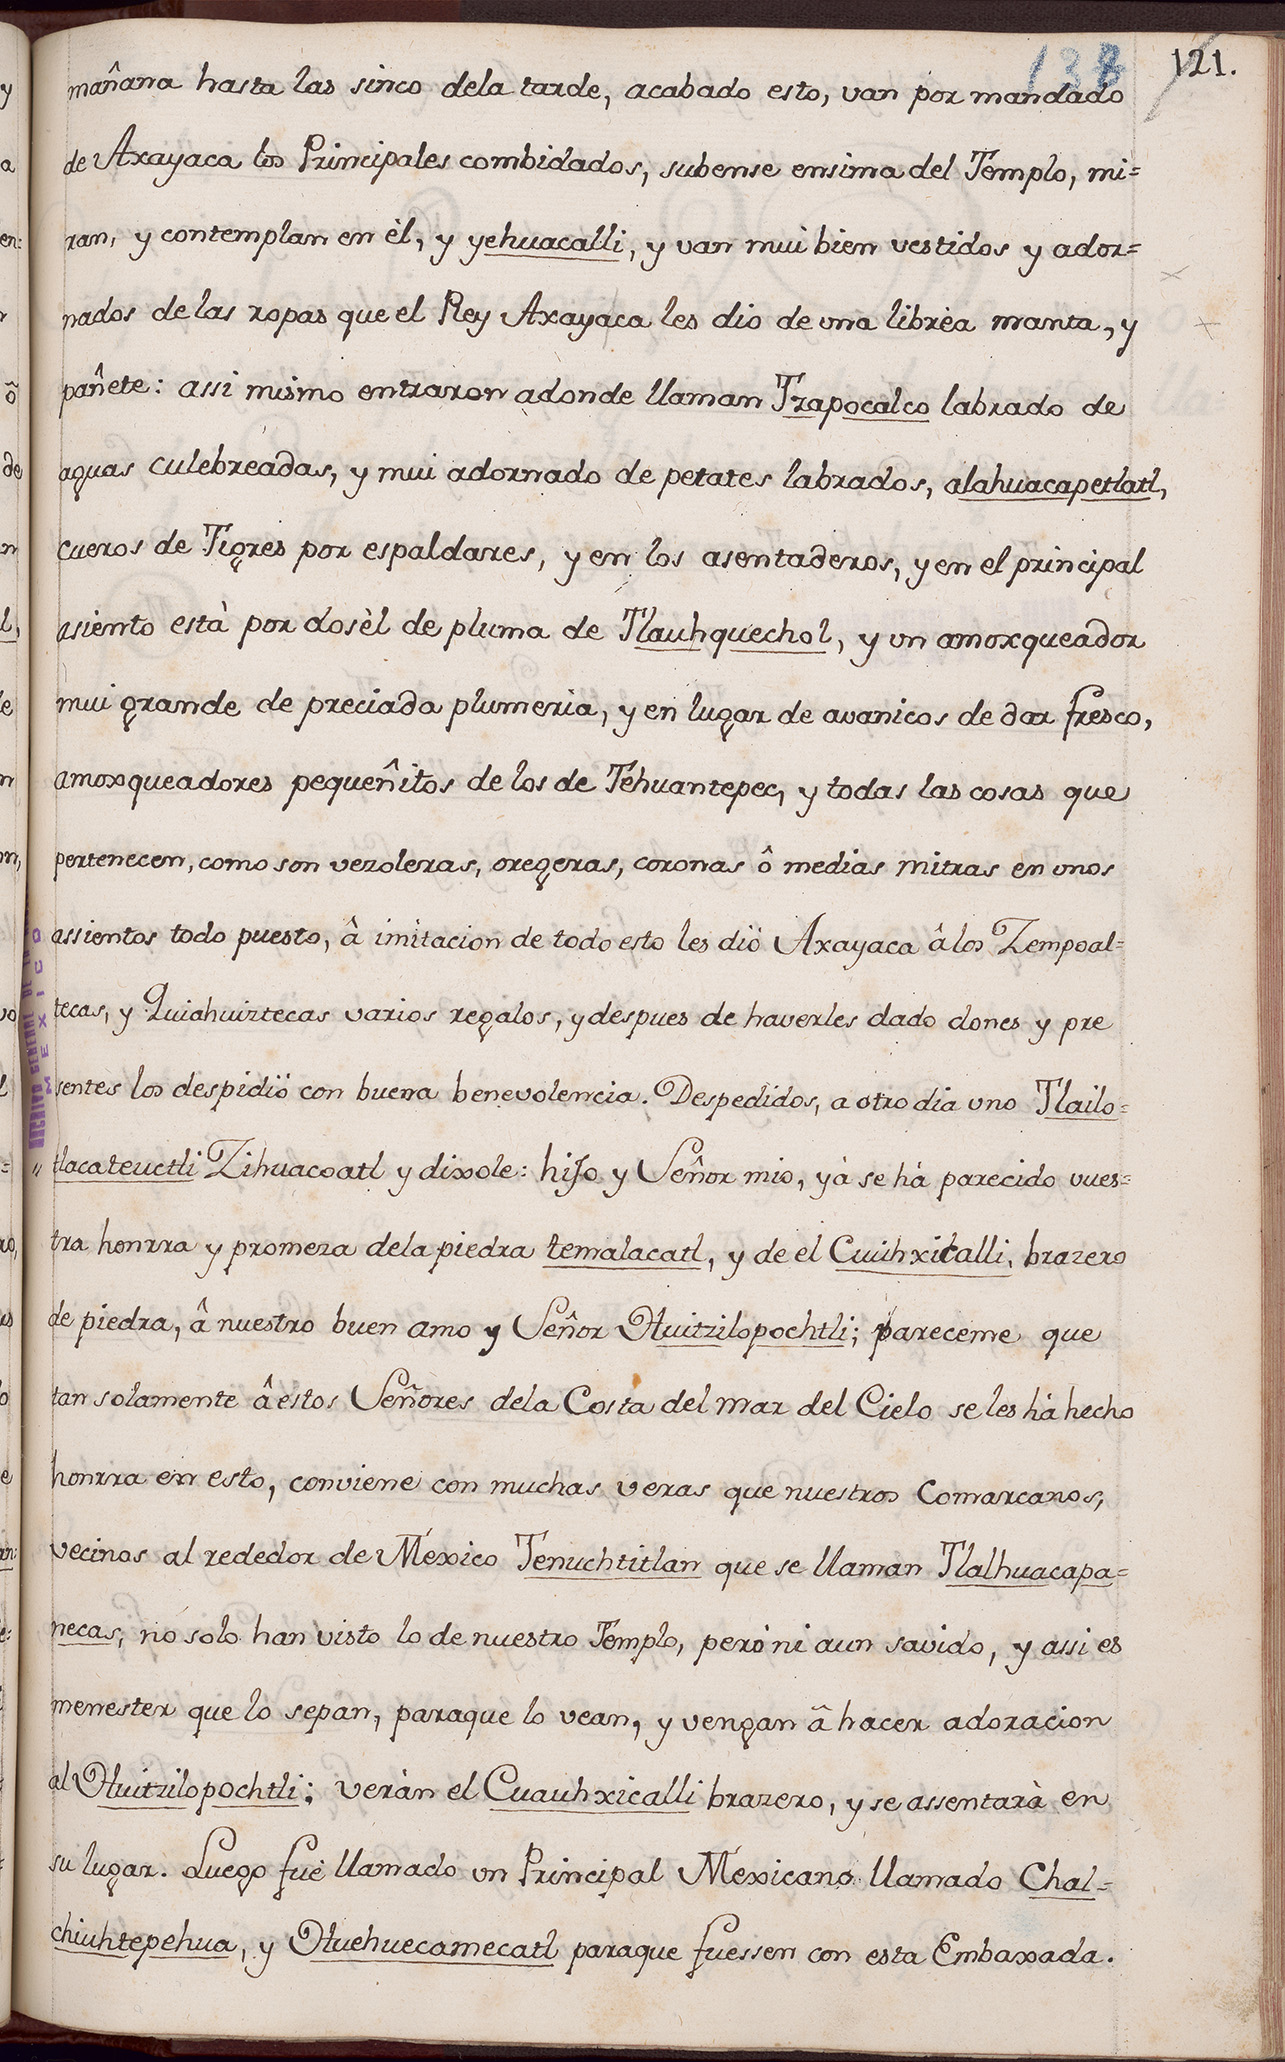 138 121.
mañana hasta las sinco dela tarde, acabado esto, van por mandado
de Axayaca los Principales combidados, subense ensima del Templo, mi=
ran, y contemplan en èl, y yehuacalli, y van mui bien vestidos y ador=
nados de las ropas que el Rey Axayaca les dio de una librèa manta, y
pañete: assi mismo entraron adonde llaman Tzapocalco labrado de
aguas culebreadas, y mui adornado de petates labrados, alahuacapetlatl,
cueros de Tigres por espaldares, y en los asentaderos, y en el principal
asiento està por dosèl de pluma de Tlauhquechol, y un amoxqueador
mui grande de preciada plumeria, y en lugar de avanicos de dar fresco,
amoxqueadores pequeñitos de los de Tehuantepec, y todas las cosas que
pertenecen, como son vezoleras, oregeras, coronas ô medias mitras en unos
assientos todo puesto, â imitacion de todo esto les diò Axayaca â los Zempoal=
tecas, y Quiahuiztecas varios regalos, y despues de haverles dado dones y pre
sentes los despidiò con buena benevolencia. Despedidos, a otro dia uno Tlailo=
tlacateuctli Zihuacoatl y dixole: hijo y Señor mio, yà se hà parecido vues=
tra honrra y promeza dela piedra temalacatl, y de el Cuuhxicalli, brazero
de piedra, â nuestro buen amo y Señor Huitzilopochtli; pareceme que
tan solamente â estos Señores dela Costa del mar del Cielo se les hà hecho
honrra en esto, conviene con muchas veras que nuestros Comarcanos,
vecinos al rededor de Mexico Tenuchtitlan que se llaman Tlalhuacapa=
necas, no solo han visto lo de nuestro Templo, pero ni aun savido, y assi es
menester que lo sepan, paraque lo vean, y vengan â hacer adoracion
al Huitzilopochtli; veràn el Cuauhxicalli brazero, y se assentarà en
su lugar. Luego fuè llamado un Principal Mexicano llamado Chal=
chiuhtepehua, y Huehuecamecatl paraque fuessen con esta Embaxada.
ARCHIVO GENERAL DE
MEXICO